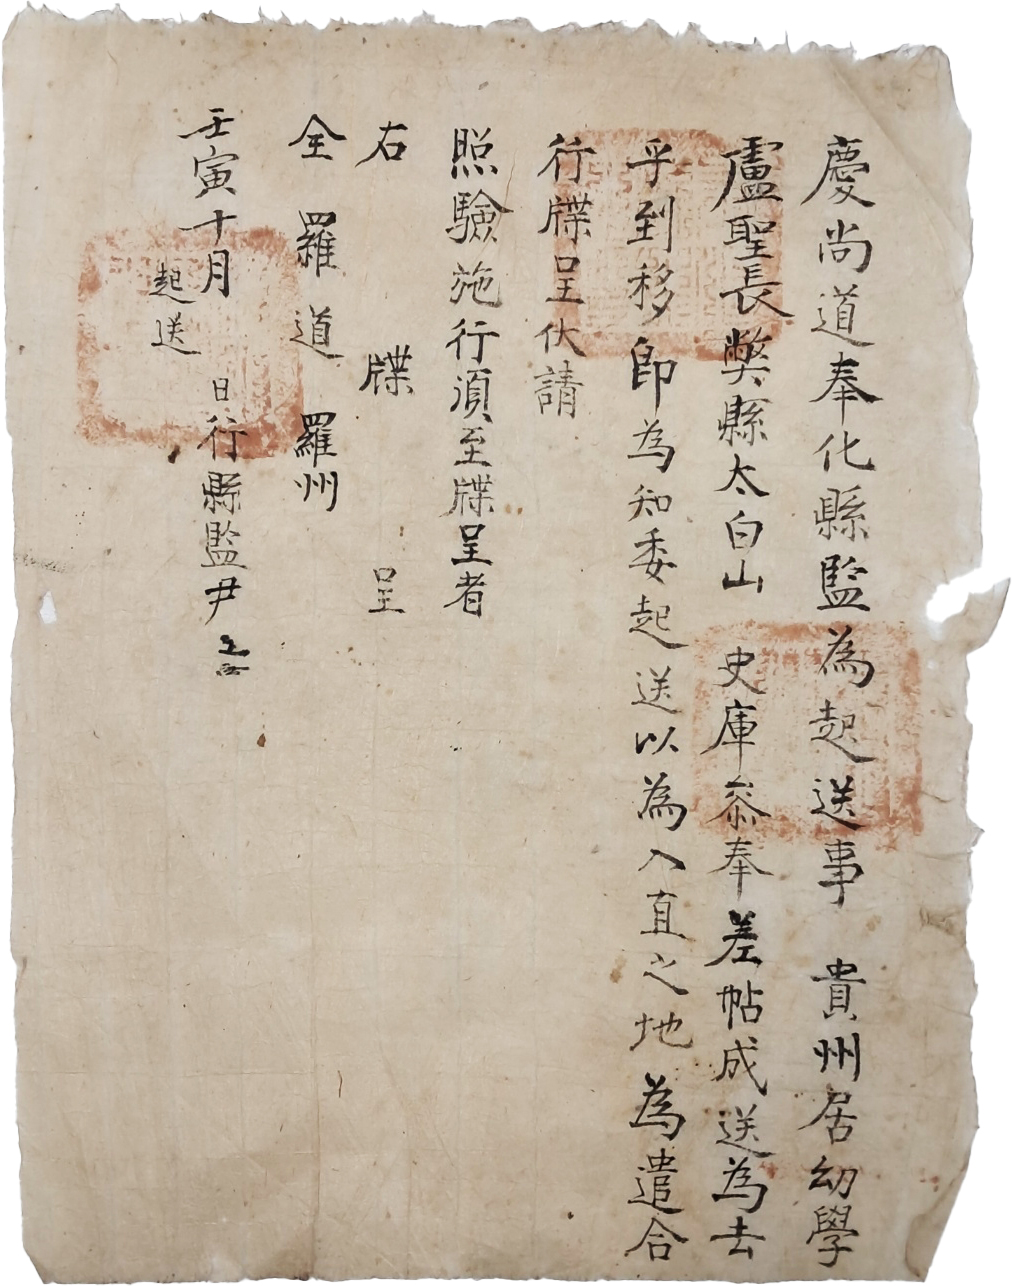 慶尚道奉化縣監為起送事 貴州居幼學
盧聖長弊縣太白山 史庫叅奉差帖成送為去
乎到移卽為知委起送以為入直之地為遣合
行牒呈伏請
照驗施行須至牒呈者
右 牒 呈
全羅道羅州
壬寅十月 日行縣監尹
起送